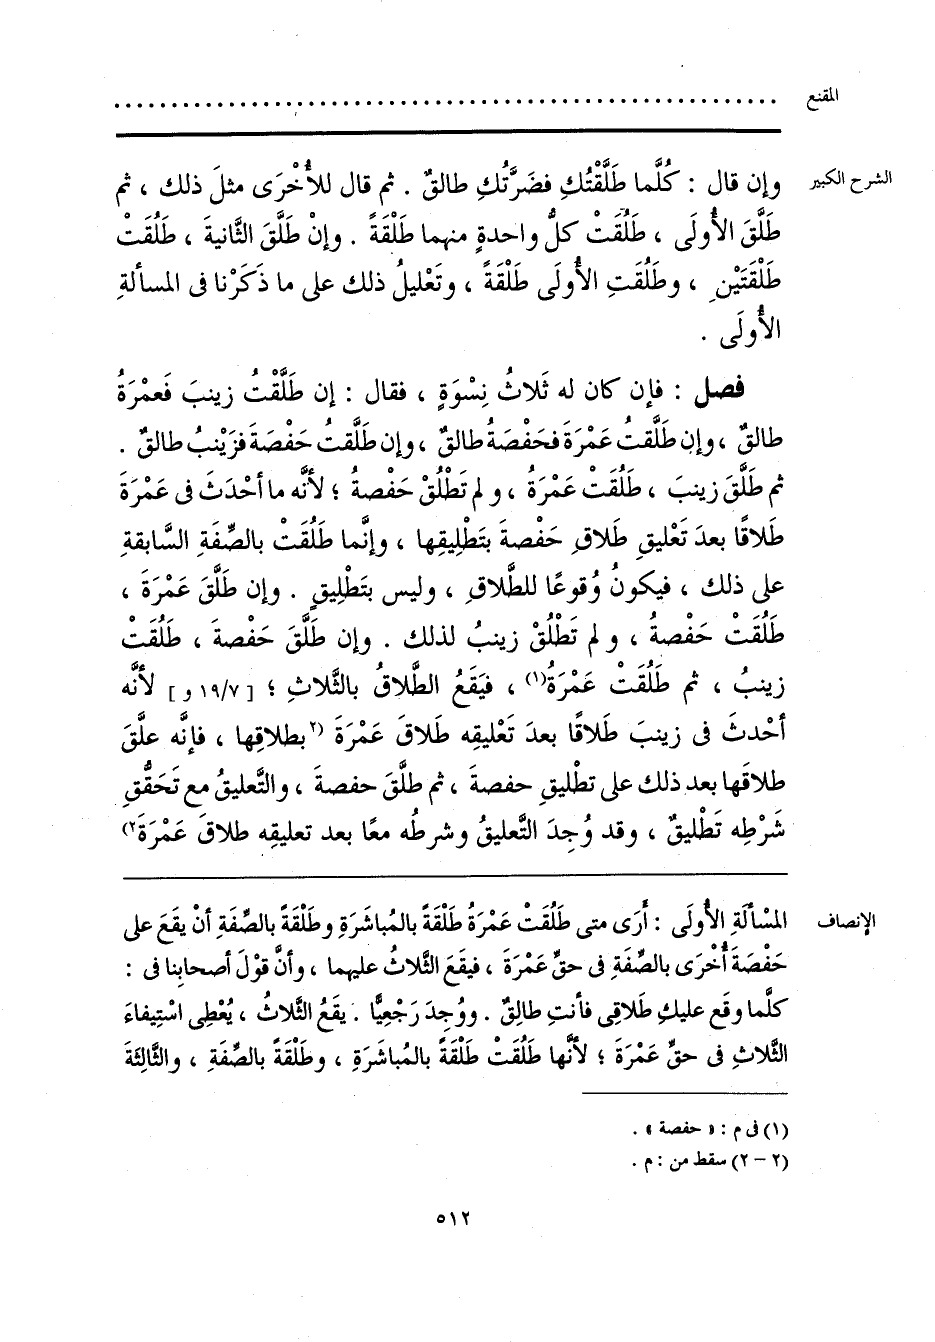 المقنع ............................................................
الشرح الكبير وإن قال : كُلَّما طَلَّقْتُكِ فضَرَّتُكِ طالقٌ . ثم قال للأُخْرَى مثلَ ذلك ، ثم
طَلَّقَ الأُولَى ، طَلُقَتْ كلُّ واحدةٍ منهما طَلْقَةً . وإنْ طَلَّقَ الثَّانيةَ ، طَلُقَتْ
طَلْقَتَيْنِ ، وطَلُقَتِ الأُولَى طَلْقَةً ، وتَعْليلُ ذلك على ما ذَكَرْنا فى المسألةِ
الأُولَى .
فصل : فإن كان له ثَلاثُ نِسْوَةٍ ، فقال : إن طَلَّقْتُ زينبَ فَعمْرَةُ
طالقٌ ، وإن طَلَّقتُ عَمْرَةَ فحَفْصَةُ طالقٌ ، وإن طَلَّقتُ حَفْصَةَ فزَيْنبُ طالقٌ .
ثم طَلَّقَ زينبَ ، طَلُقَتْ عَمْرَةُ ، و لم تَطْلُقْ حَفْصةُ ؛ لأنَّه ما أحْدَثَ فى عَمْرَةَ
طَلاقًا بعدَ تَعْليقِ طَلاقِ حَفْصةَ بتَطْلِيقِها ، وإنَّما طَلُقَتْ بالصِّفَةِ السَّابقةِ
على ذلك ، فيكونُ وُقوعًا للطَّلاقِ ، وليس بتَطْلِيقٍ . وإن طَلَّقَ عَمْرَةَ ،
طَلُقَتْ حَفْصةُ ، و لم تَطْلُقْ زينبُ لذلك . وإن طَلَّقَ حَفْصةَ ، طَلُقَتْ
زينبُ ، ثم طَلُقَتْ عَمْرَةُ(١) ، فيَقَعُ الطَّلاقُ بالثَّلاثِ ؛ [ ١٩/٧ و ] لأنَّه
أحْدثَ فى زينبَ طَلاقًا بعدَ تَعْليقِه طَلاقَ عَمْرَةَ (٢بطلاقِها ، فإنَّه علَّقَ
طلاقَها بعد ذلك على تطْليقِ حفصةَ ، ثم طلَّقَ حفصةَ ، والتَّعليقُ مع تَحَقُّقِ
شَرْطِه تَطْليقٌ ، وقد وُجِدَ التَّعليقُ وشرطُه معًا بعد تعليقِه طلاقَ عَمْرَةَ٢)
الإنصاف المسْألَةِ الأُولَى : أَرَى متى طَلُقَتْ عَمْرَةُ طَلْقَةً بالمُباشَرَةِ وطَلْقَةً بالصِّفَةِ أنْ يقَعَ على
حَفْصَةَ أُخْرَى بالصِّفَةِ فى حقِّ عَمْرَةَ ، فيقَعَ الثَّلاثُ عليهما ، وأنَّ قوْلَ أصحابِنا فى :
كلَّما وقَع عليكِ طَلاقِى فأنتِ طالِقٌ . ووُجِدَ رَجْعِيًّا . يقَعُ الثَّلاثُ ، يُعْطِى اسْتِيفاءَ
الثَّلاثِ فى حقِّ عَمْرَةَ ؛ لأنَّها طَلُقَتْ طَلْقَةً بالمُباشَرَةِ ، وطَلْقَةً بالصِّفَةِ ، والثَّالِثَةَ
(١) فى م : « حفصة » .
(٢ - ٢) سقط من : م .
٥١٢